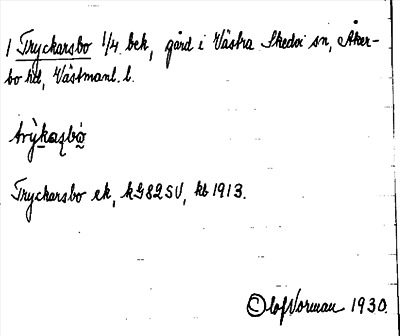 1 Tryckarsbo 1/4 bek, gård i Västra Skedvi sn, Åker-
bo hd, Västmanl. l.
Tryckarsbo ek, kG82SV, kb 1913.
Olof Norman 1930.